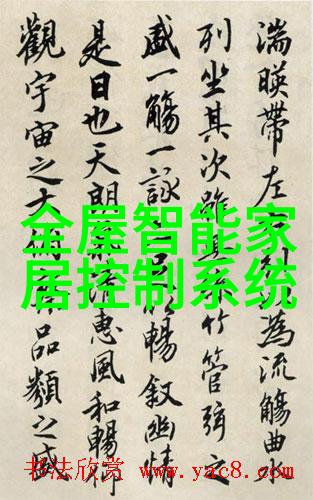 湍暎帶左引以為流觴曲水
列坐其次雖無絲竹管弦之
盛一觴一詠暢叙幽情
是日也天朗清惠風和暢仰
觀宇宙之大品類之盛
全屋智能家
居控制系统
书法欣赏 www.yac8.com